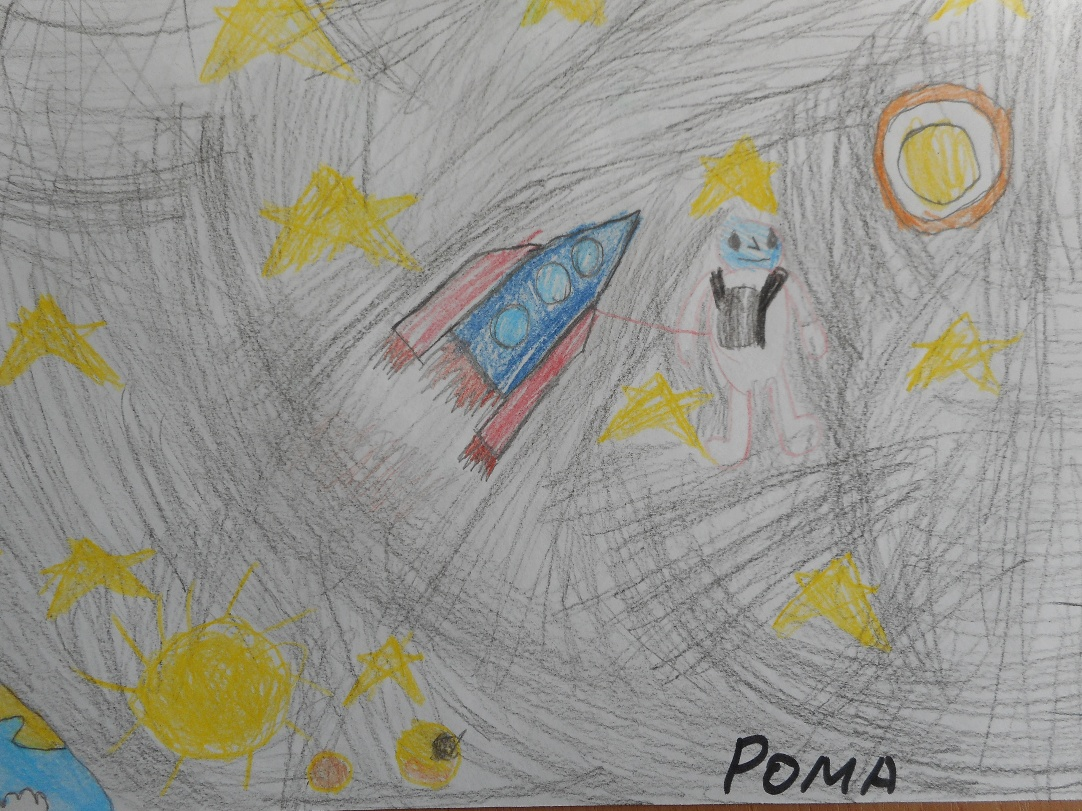 РОМА